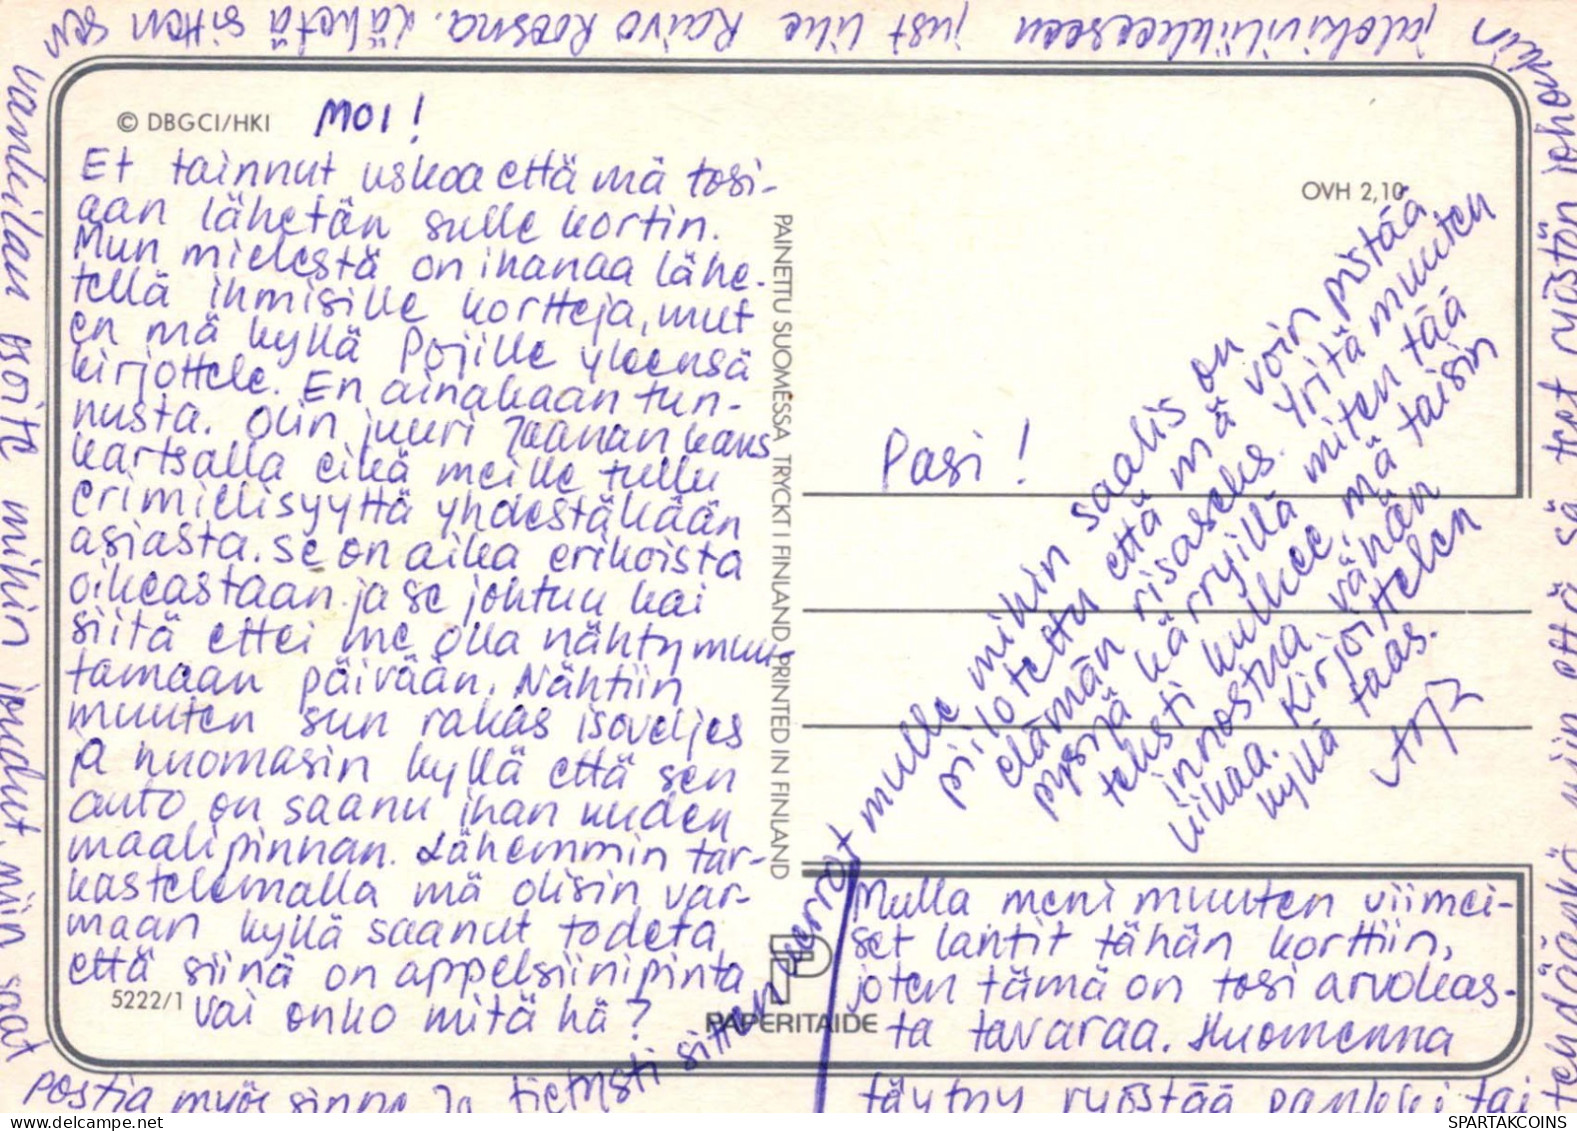 © DBGCI/HKI
MOI!
Et tainnut uskoa että mä tosi-
aan lähetän sulle kortin.
Mun mielestä on ihanaa lähe-
tellä ihmisille kortteja, mut
en mä kyllä Pojille yleensä
kirjottele. En ainakaan tun-
nusta. Olin juuri Jaanan kans
kartsalla eikä meille tullu
erimielisyyttä yhdestäkään
asiasta. Se on aika erikoista
oikeastaan ja se johtuu kai
siitä ettei me olla nähty muu-
tamaan päivään. Nähtiin
muuten sun rakas isoveljes
ja huomasin kyllä että sen
auto on saanu ihan uuden
maalipinnan. Lähemmin tar-
kastelemalla mä olisin var-
maan kyllä saanut todeta
että siinä on appelsiinipinta
vai onko mitä hä?
5222/1
PAINETTU SUOMESSA TRYCKT I FINLAND PRINTED IN FINLAND
PAPERITAIDE
OVH 2,10
Pasi!
Mulla meni muuten viimei-
set lantit tähän korttiin,
joten tämä on tosi arvokas-
ta tavaraa. Huomenna
täytyy ryöstää pankki tai
tehdäänkö niin että sä teet ryöstön johonkin
jalokiviliikkeeseen just like Raivo Roosna. Lähetä sitten sen
vankilan osoite mihin joudut, niin saat
postia myös sinne. Ja tietysti sitten kerrot
mulle mihin saalis on
piilotettu että mä voin pistää
elämän risaseks. Yritä muuten
pysyä kärryillä miten tää
teksti kulkee, mä taisin
innostua vähän
liikaa. Kirjoittelen
kyllä taas.